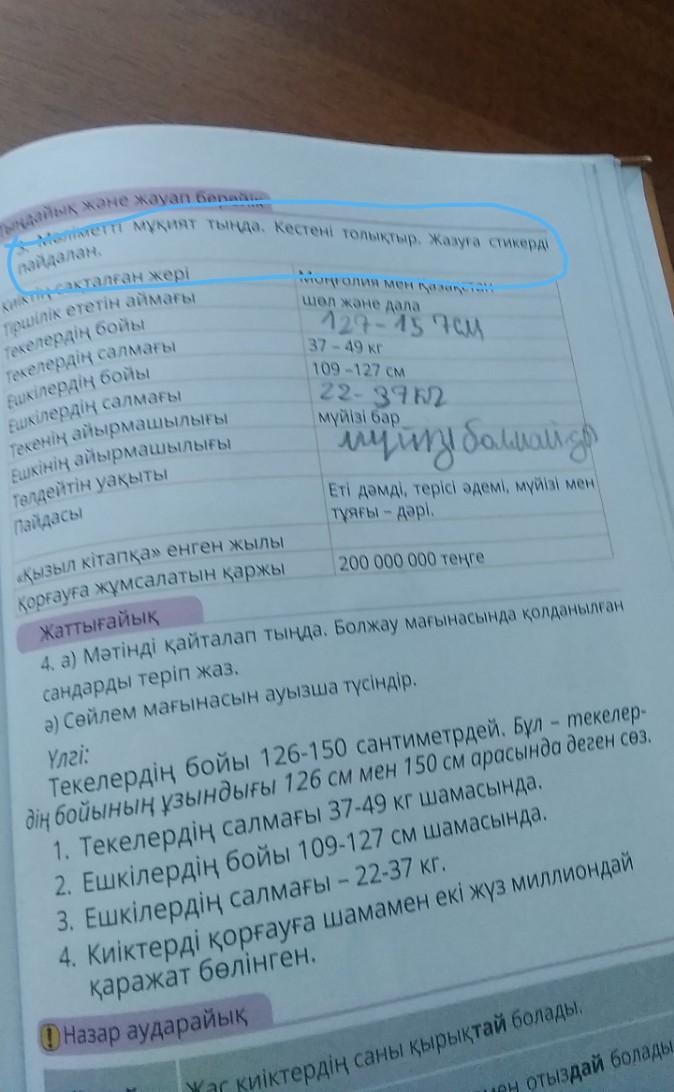 тыңдайық және жауап берейік
3. Мәліметті мұқият тыңда. Кестені толықтыр. Жазуға стикерді
пайдалан.
Киіктің сақталған жері Моңғолия мен Қазақстан
Тіршілік ететін аймағы шөл және дала
Текелердің бойы 127-157см
Текелердің салмағы 37 – 49 кг
Ешкілердің бойы 109 –127 см
Ешкілердің салмағы 22-37кг
Текенің айырмашылығы мүйізі бар
Ешкінің айырмашылығы мүйізі болмайды
Төлдейтін уақыты
Пайдасы Еті дәмді, терісі әдемі, мүйізі мен
тұяғы – дәрі.
«Қызыл кітапқа» енген жылы
Қорғауға жұмсалатын қаржы 200 000 000 теңге
Жаттығайық
4. а) Мәтінді қайталап тыңда. Болжау мағынасында қолданылған
сандарды теріп жаз.
ә) Сөйлем мағынасын ауызша түсіндір.
Үлгі:
Текелердің бойы 126-150 сантиметрдей. Бұл – текелер-
дің бойының ұзындығы 126 см мен 150 см арасында деген сөз.
1. Текелердің салмағы 37-49 кг шамасында.
2. Ешкілердің бойы 109-127 см шамасында.
3. Ешкілердің салмағы – 22-37 кг.
4. Киіктерді қорғауға шамамен екі жүз миллиондай
қаражат бөлінген.
! Назар аударайық
Жас киіктердің саны қырықтай болады.
отыздай болады